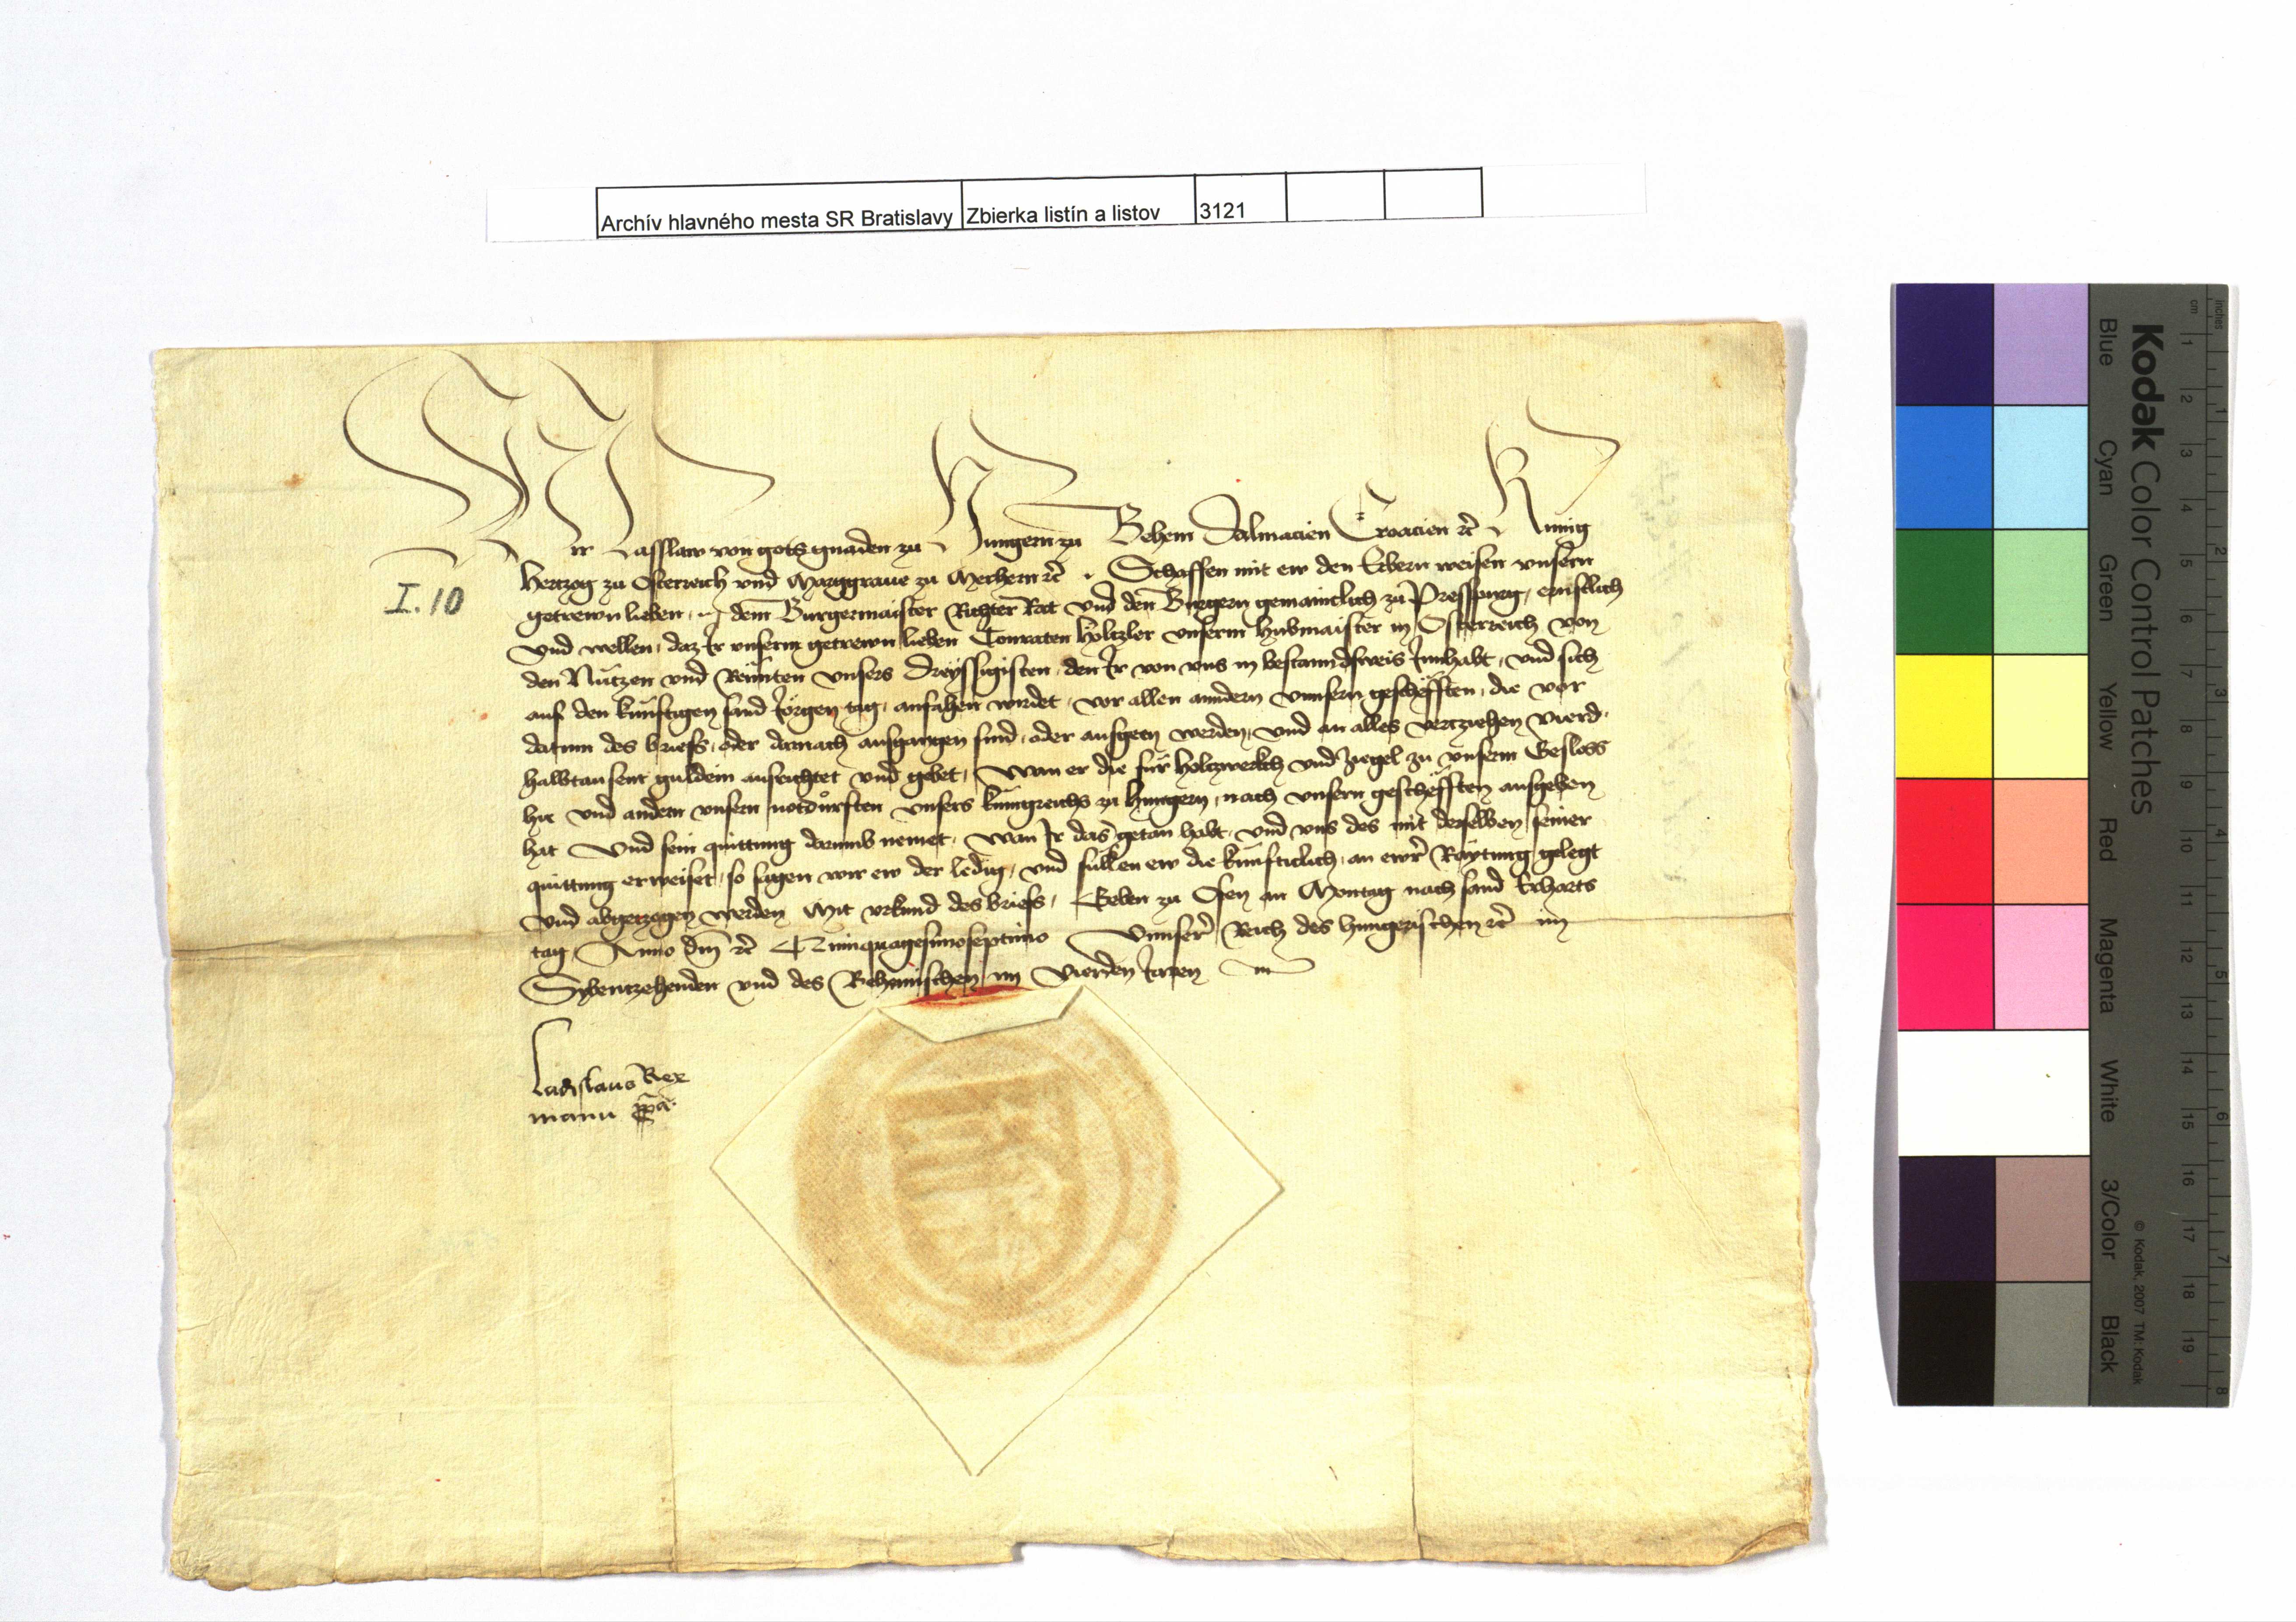 Archív hlavného mesta SR Bratislavy Zbierka listín a listov 3121
Wir Lasslaw von gots gnaden zu Hungern zu Behem Dalmacien Croacien etc Kunig
Hertzog zu Osterreich vnd Marggraue zu Merhern etc. Schaffen mit ew den Erbern weisen vnsern
getrewn lieben dem Burgermaister Richter Rat vnd den Burgern gemainclich zu Prespurg, ernstlich
vnd wellen, daz Ir vnserm getrewn lieben Conraten Holtzler vnserm Hubmaister in Osterreich von
den Nutzen vnd Rennten vnsers Dreyssigisten, den Ir von vns in bestanndsweis Innhabt, vnd sich
auf den kunftigen sand Jörgen tag, anfahen wirdet, vor allen anndern vnnsern geschefften, die vor
datum des briefs, oder darnach ausgangen sind, oder ausgeen werden, vnd an alles verziehen vierd-
halbtausent guldein ausrichtet vnd gebet, Wan er die für holtzwerkch vnd Ziegel zu vnserm Gesloss
hie vnd andern vnsern notdurften vnsers kunigreichs zu Hungern, nach vnsern geschefften ausgeben
hat Vnd sein quittung darumb nemet, Wan Ir das getan habt, vnd vns des mit derselben seiner
quittung erweiset, so sagen wir ew der ledig, vnd sullen ew die kunfticlich, an ewr Raytung gelegt
vnd abgezogen werden Mit vrkund des briefs, Geben zu Ofen an Montag nach sand Erharts
tag, Anno dm̄ etc Quinquagesimoseptimo Vnnser Reich des Hungerischen etc im
Sybentzehenden vnd des Behmischen im Vierden Jaren
Ladislaus Rex
manu ppa
I. 10
Kodak Color Control Patches
Blue Cyan Green Yellow Red Magenta White 3/Color Black
inches 1 2 3 4 5 6 7 8
cm 1 2 3 4 5 6 7 8 9 10 11 12 13 14 15 16 17 18 19
© Kodak, 2007 TM: Kodak